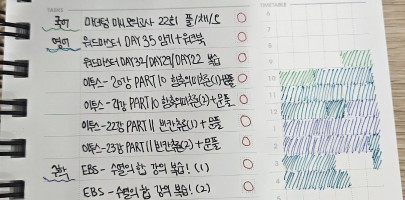 TASKS
TIMETABLE
국어 마더텅 미니모의고사 22회 풀/채/오
영어 워드마스터 DAY 35 암기 + 워크북
워드마스터 DAY 34/DAY 29/DAY 22 복습
이투스 - 20강 PART 10 함축의미추론(1) + 문풀
이투스 - 21강 PART 10 함축의미추론(2) + 문풀
이투스 - 22강 PART 11 빈칸추론(1) + 문풀
이투스 - 23강 PART 11 빈칸추론(2) + 문풀
수학 EBS - 수열의 합 강의 복습! (1)
EBS - 수열의 합 강의 복습! (2)
6
7
8
9
10
11
12
1
2
3
4
5